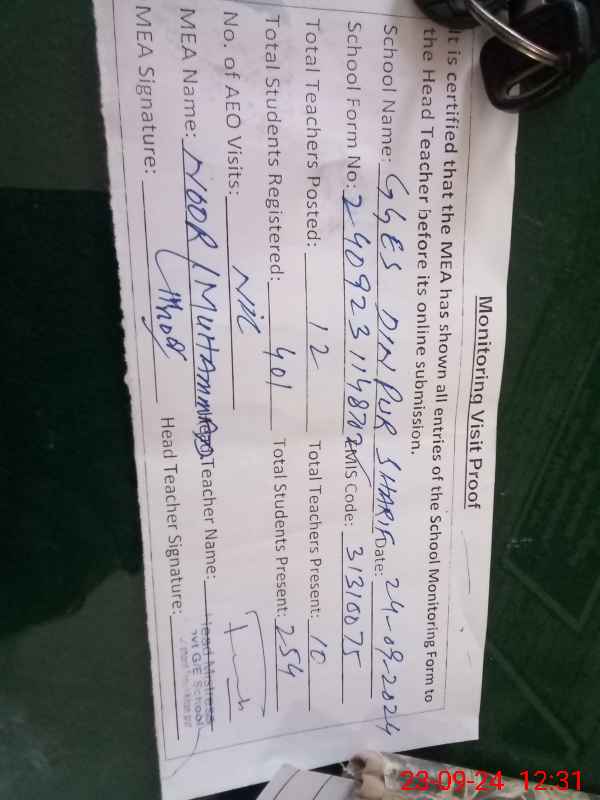 Monitoring Visit Proof
It is certified that the MEA has shown all entries of the School Monitoring Form to
the Head Teacher before its online submission.
School Name: GGES DIN PUR SHARIF Date: 24-09-2024
School Form No: EMIS Code: 31310075
Total Teachers Posted: 12 Total Teachers Present: 10
Total Students Registered: 401 Total Students Present: 254
No. of AEO Visits: NIL
MEA Name: NOOR MUHAMMAD Teacher Name:
MEA Signature: Head Teacher Signature:
Head Mistress
Govt G/E School
23-09-24 12:31